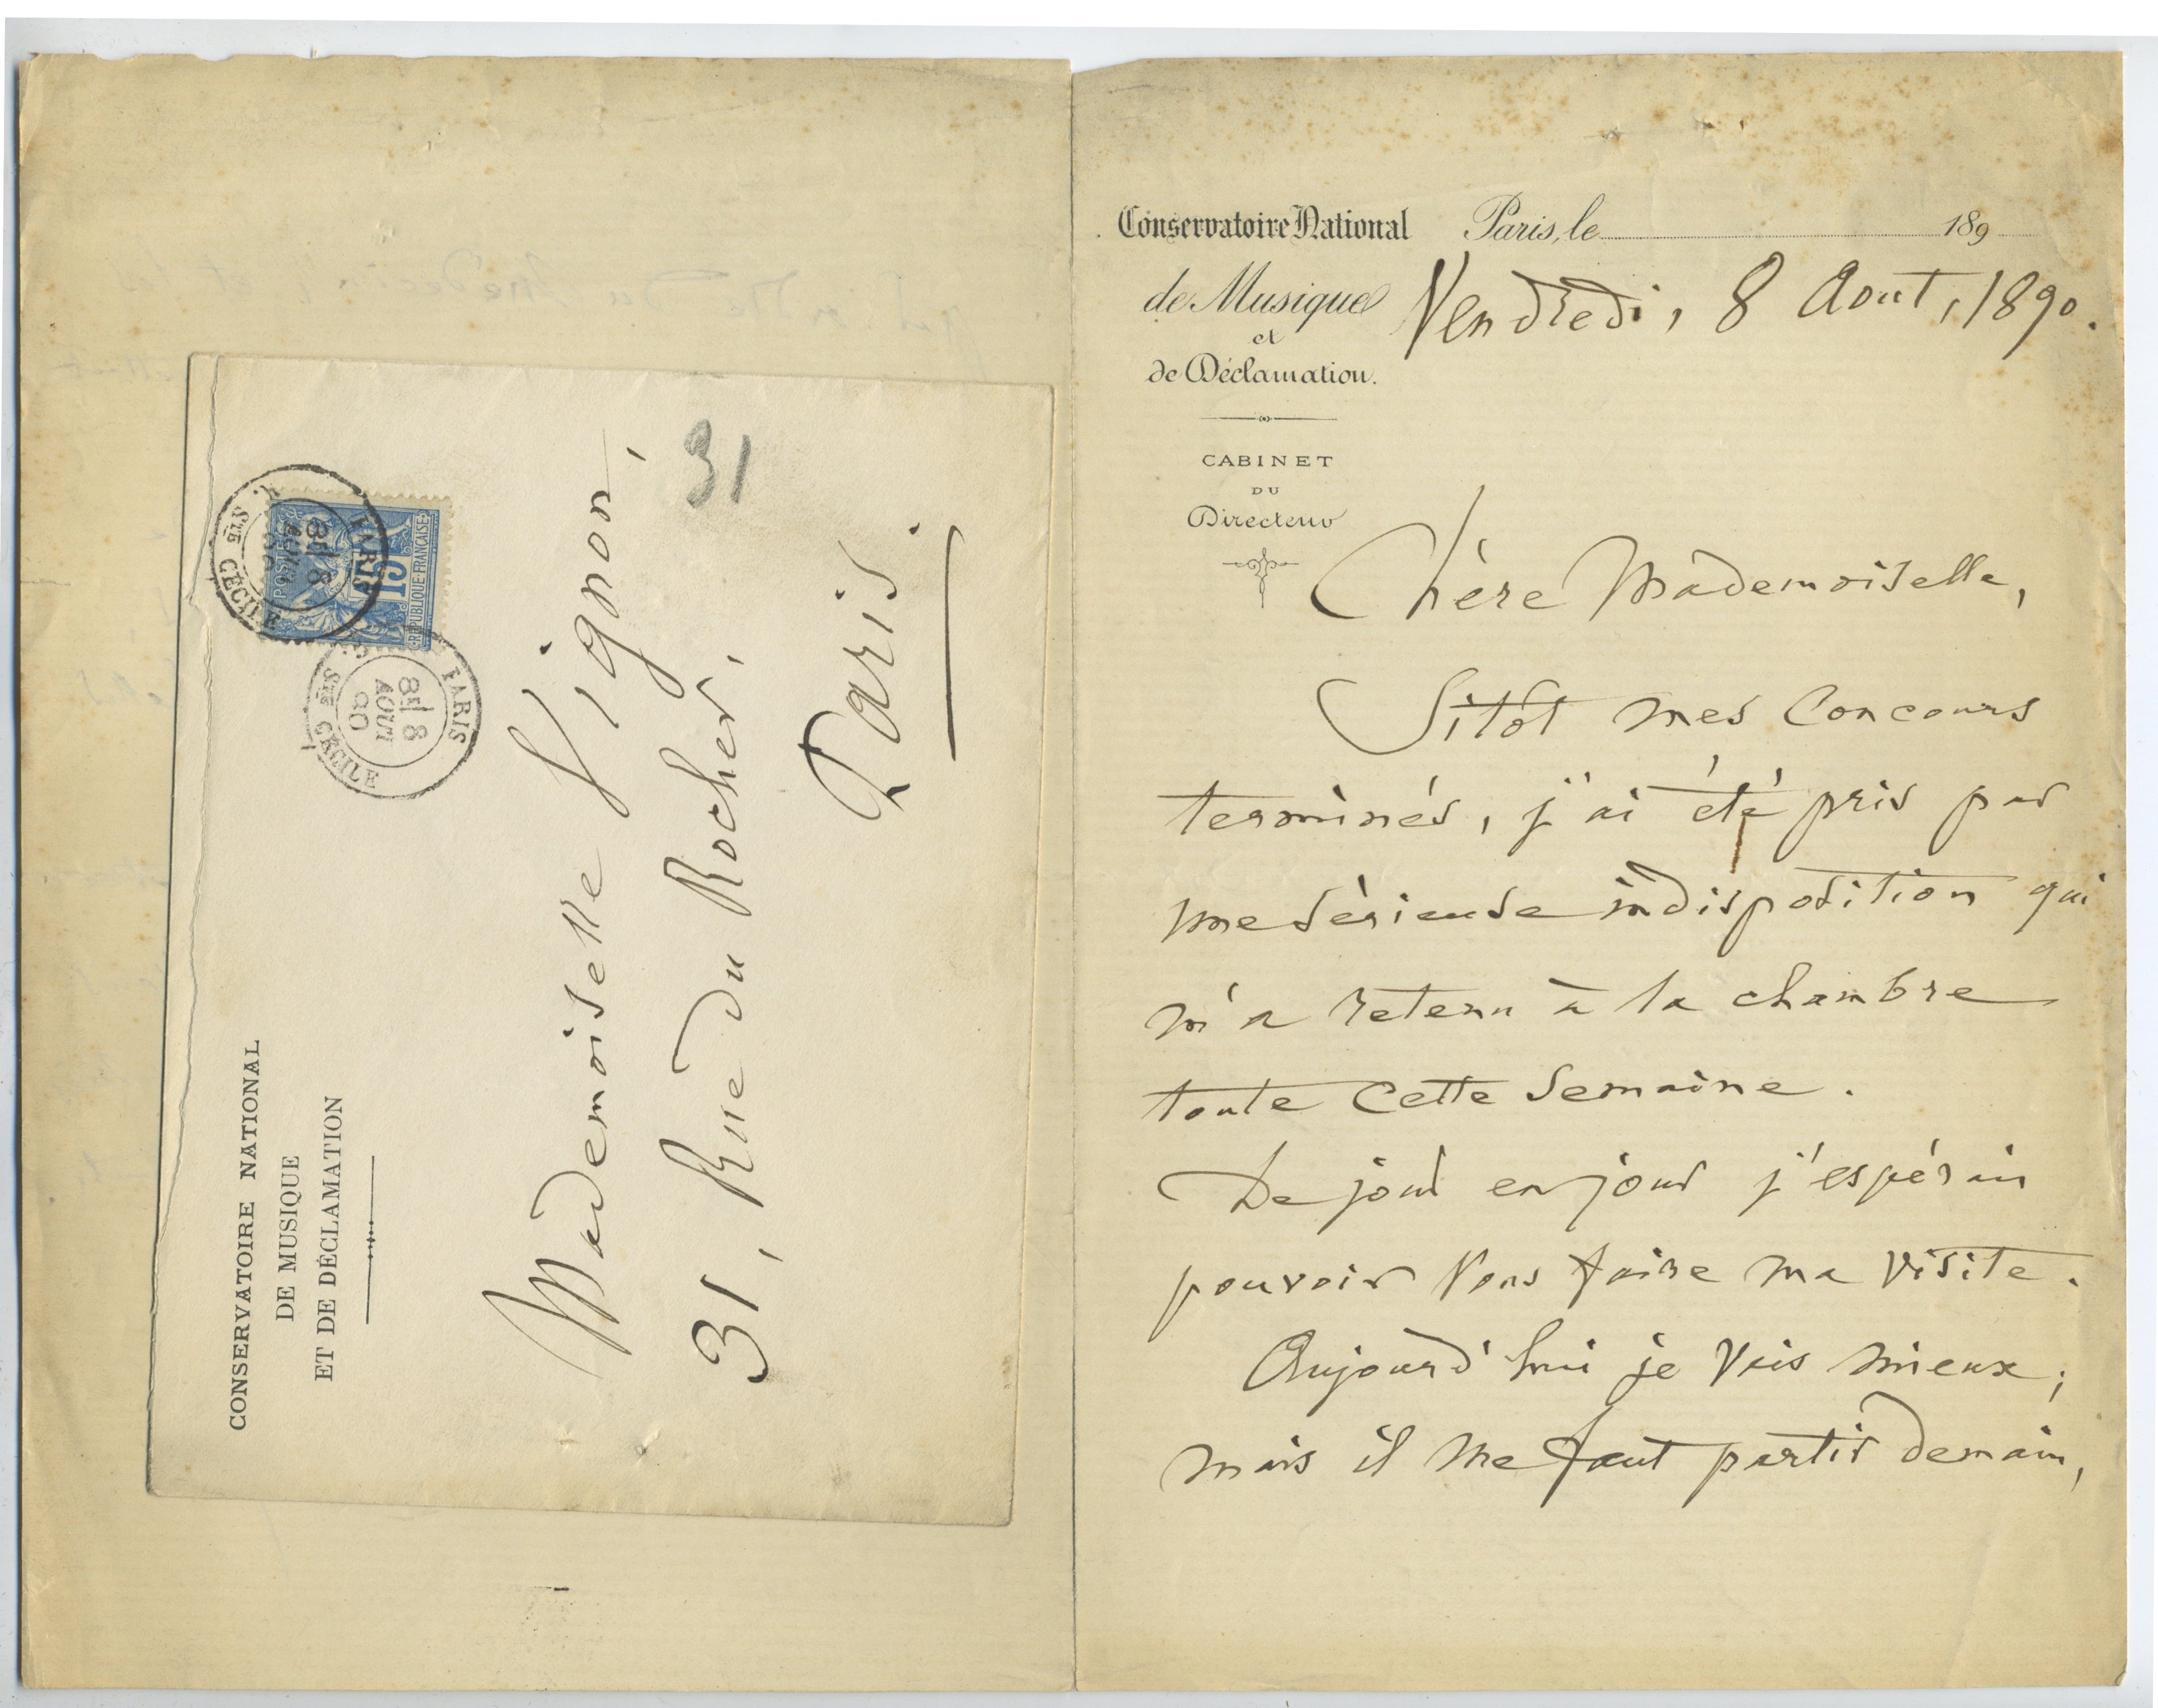 CONSERVATOIRE NATIONAL
DE MUSIQUE
ET DE DÉCLAMATION
PARIS
8 AOUT 90
STE CÉCILE
POSTES
15
REPUBLIQUE FRANÇAISE
PARIS
8 AOUT 90
STE CÉCILE
Mademoiselle Vignon,
31, Rue du Rocher,
Paris.
31
Conservatoire National
de Musique
et
de Déclamation.
CABINET
DU
Directeur
Paris, le 189
Vendredi, 8 Aout, 1890.
Chère Mademoiselle,
Sitôt mes Concours
terminés, j'ai été pris par
une sérieuse indisposition qui
m'a retenu à la chambre
toute cette semaine.
De jour en jour j'espérais
pouvoir vous faire ma visite.
Aujourd'hui je vais mieux;
mais il me faut partir demain,